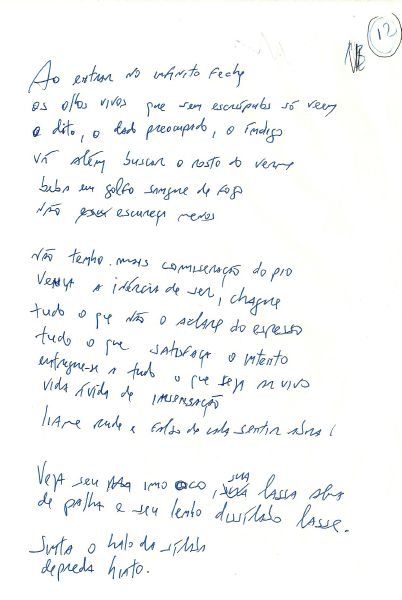 12
Ao entrar no infinito feche
os olhos vivos que sem escrúpulos só veem
o dito, o dado preocupado, o índigo
Vá além buscar o rosto do verme
beba em golfo sangue de fogo
não escureça menos
Não tenho mais comiseração do pio
Vença a inércia de ser, chague
tudo o que não o aclare do espesso
tudo o que satisfaça o intento
entregue-se a tudo o que seja vivo
vida ávida de insensação
rude e falso de cada sentir
Veja seu imo oco, sua lassa
de palha e seu lento lasse.
Sinta o halo da
depreda hiato.